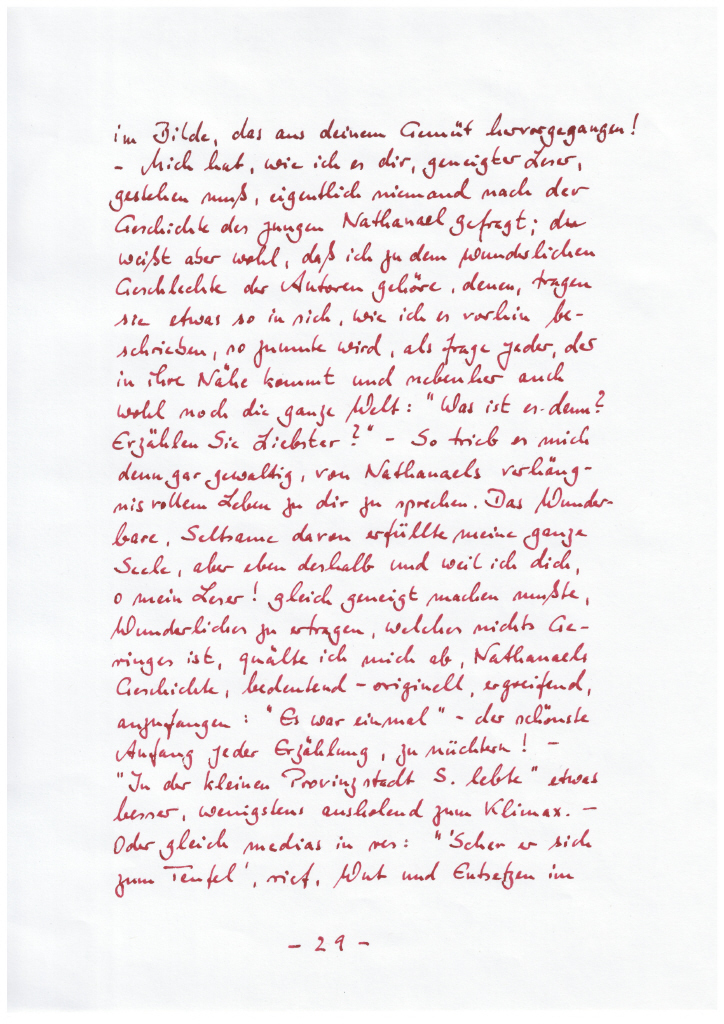 im Bilde, das aus deinem Gemüt hervorgegangen!
– Mich hat, wie ich es dir, geneigter Leser,
gestehen muß, eigentlich niemand nach der
Geschichte des jungen Nathanael gefragt; du
weißt aber wohl, daß ich zu dem wunderlichen
Geschlechte der Autoren gehöre, denen, tragen
sie etwas so in sich, wie ich es vorhin be-
schrieben, so zumute wird, als frage jeder, der
in ihre Nähe kommt und nebenher auch
wohl noch die ganze Welt: "Was ist es denn?
Erzählen Sie Liebster?" – So trieb es mich
denn gar gewaltig, von Nathanaels verhäng-
nisvollem Leben zu dir zu sprechen. Das Wunder-
bare, Seltsame davon erfüllte meine ganze
Seele, aber eben deshalb und weil ich dich,
o mein Leser! gleich geneigt machen mußte,
Wunderliches zu ertragen, welches nichts Ge-
ringes ist, quälte ich mich ab, Nathanaels
Geschichte, bedeutend – originell, ergreifend,
anzufangen: "Es war einmal" – der schönste
Anfang jeder Erzählung, zu nüchtern! –
"In der kleinen Provinzstadt S. lebte" etwas
besser, wenigstens ausholend zum Klimax. –
Oder gleich medias in res: "'Scher er sich
zum Teufel', rief, Wut und Entsetzen im
– 29 –